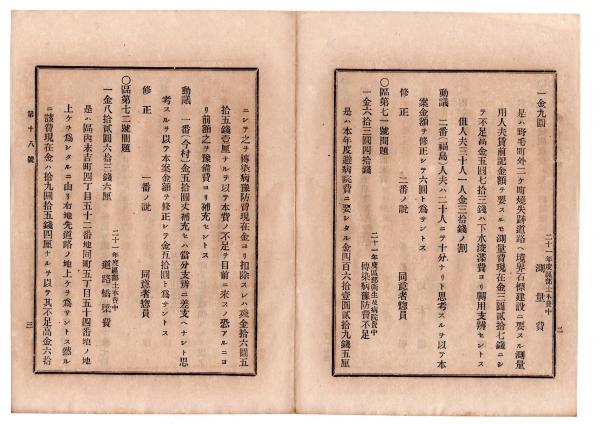 一金九圓
二十一年度區郡部土木費中
測量費
是ハ野毛町外二ケ町燒失跡道路ヘ境界石標建設ニ要スル測量
用人夫賃前記金額ヲ要スルモ測量費現在金三圓貳拾七錢ニシ
テ不足高金五圓七拾三錢ハ下水浚濬費ヨリ飜用支辨セントス
但人夫三十人一人金三拾錢ノ割
動議 二番(福島)人夫ハ二十人ニテ十分ナリト思考スルヲ以テ本
案金額ヲ修正シテ六圓ト爲サントス
修正 二番ノ說 同意者惣員
〇區第七一號問題
二十一年度區郡衛生及病院費中
一金六拾三圓四拾錢
傳染病豫防費不足
是ハ本年度避病院費ニ要シタル金四百六拾壹圓貳拾九錢五厘
二
ニシテ之ヲ傳染病豫防費現在金ヨリ扣除スレハ殘金拾六圓五
拾五錢壹厘ナルヲ以テ本費ノ不足ヲ目前ニ來スノ恐アルニヨ
リ前額之ヲ豫備費ヨリ補充セントス
動議 一番(今村)金五拾圓丈補充セハ當分支辨ニ差支ヘナシト思
考スルヲ以テ本案金額ヲ修正シテ金五拾圓ト爲サントス
修正 一番ノ說 同意者惣員
〇區第七二號問題
二十一年度區部土木費中
一金八拾貳圓六拾三錢六厘
道路橋梁費
是ハ區内末吉町四丁目五十二番地同町五丁目五十四番地ノ地
上ケヲ爲シタルニ由リ右地先道路ノ地上ケヲ爲サントス然ル
ニ該費現在金ハ拾九圓拾五錢四厘ナルヲ以テ其不足高金六拾
第十八號
三